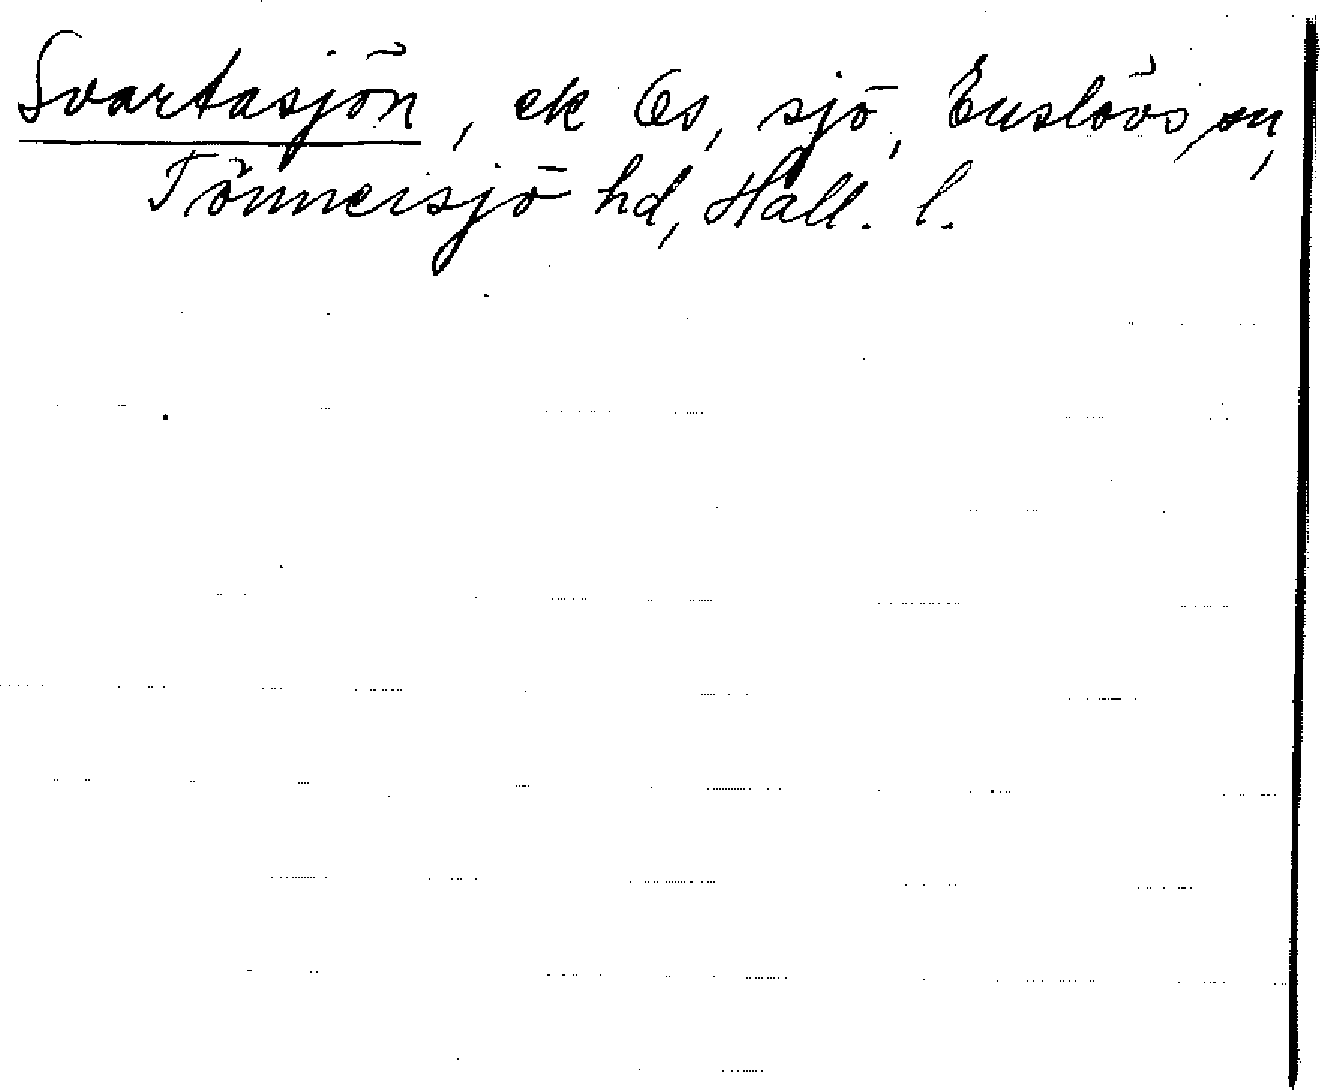 Svartasjön, ek 6s, sjö, Enslövs sn,
Tönnersjö hd, Hall. l.